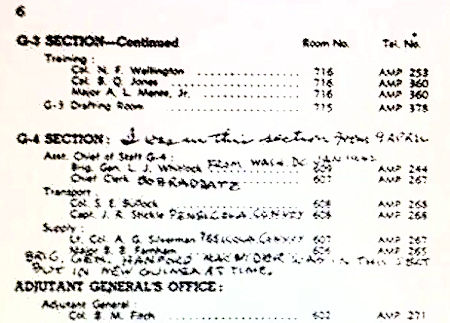 6
G-3 SECTION—Continued Room No. Tel. No.
Training:
Col. N. F. Wellington 716 AMP 253
Col. S. Q. Jones 716 AMP 360
Major A. L. Mense, Jr. 716 AMP 360
G-3 Drafting Room 715 AMP 378
G-4 SECTION: I was in this section from 9 APRIL
Asst. Chief of Staff G-4: FROM WASH. DC JAN 1942
Brig. Gen. L. J. Whitlock 609 AMP 244
Chief Clerk BOB RADDATZ 607 AMP 267
Transport:
Col. S. E. Bullock 608 AMP 268
Capt. J. R. Stickle PENSACOLA CONVOY 608 AMP 268
Supply:
Lt. Col. A. G. Silverman PENSACOLA CONVOY 607 AMP 267
Major B. E. Farnham 606 AMP 265
BRIG. GEN. HANFORD MACNIDER WAS IN THIS SECT
BUT IN NEW GUINEA AT TIME.
ADJUTANT GENERAL'S OFFICE:
Adjutant General:
Col. B. M. Fitch 602 AMP 271